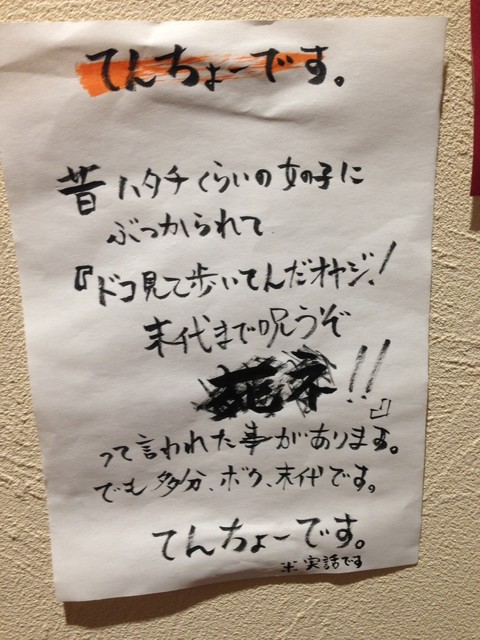 てんちょーです。
昔ハタチくらいの女の子に
ぶつかられて
『ドコ見て歩いてんだオヤジ!
末代まで呪うぞ
死ネ!!』
って言われた事があります。
でも多分、ボク、末代です。
てんちょーです。
※実話です